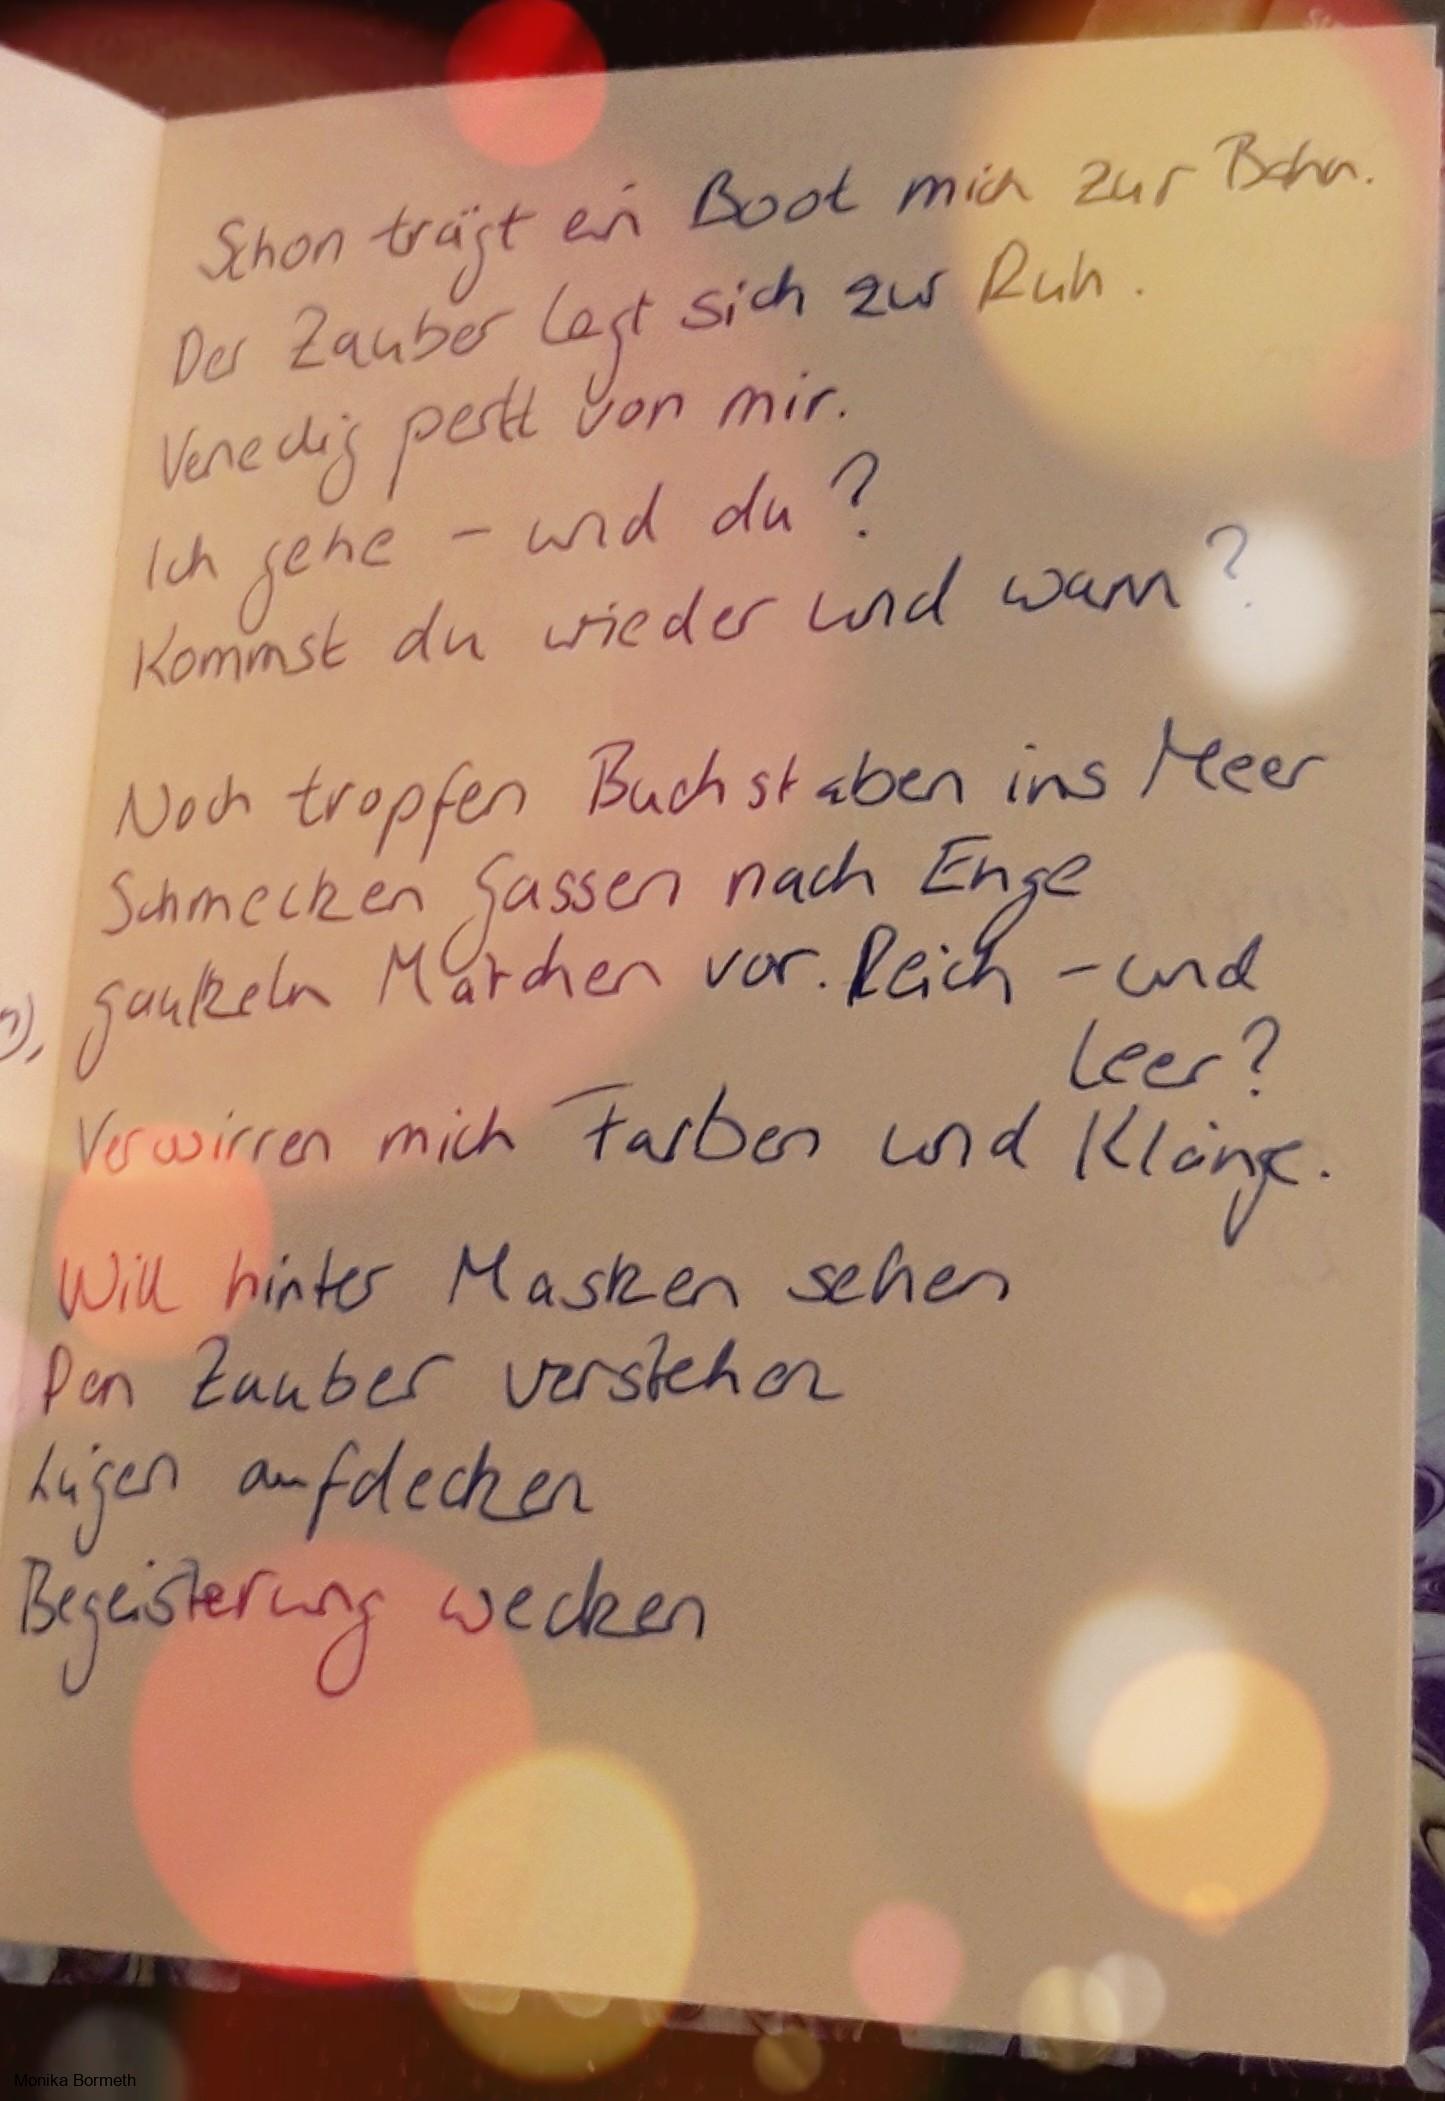 Schon trägt ein Boot mich zur Bahn.
Der Zauber legt sich zur Ruh.
Venedig perlt von mir.
Ich gehe – und du?
Kommst du wieder und wann?
Noch tropfen Buchstaben ins Meer
Schmecken Gassen nach Enge
gaukeln Märchen vor. Reich – und
leer?
Verwirren mich Farben und Klänge.
Will hinter Masken sehen
Den Zauber verstehen
Lügen aufdecken
Begeisterung wecken
Monika Bormeth